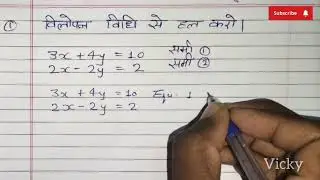 ① विलोपन विधि से हल करो।
3x + 4y = 10 समी ①
2x - 2y = 2 समी ②
3x + 4y = 10 Equ. 1
2x - 2y = 2
Subscribe
Vicky